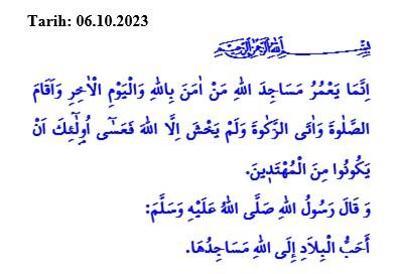 Tarih: 06.10.2023
بِسْمِ اللّٰهِ الرَّحْمٰنِ الرَّحِيمِ
اِنَّمَا يَعْمُرُ مَسَاجِدَ اللّٰهِ مَنْ اٰمَنَ بِاللّٰهِ وَالْيَوْمِ الْاٰخِرِ وَاَقَامَ
الصَّلٰوةَ وَاٰتَى الزَّكٰوةَ وَلَمْ يَخْشَ اِلَّا اللّٰهَ فَعَسٰٓى اُو۬لٰٓئِكَ اَنْ
يَكُونُوا مِنَ الْمُهْتَد۪ينَ.
وَ قَالَ رَسُولُ اللّٰهِ صَلَّى اللّٰهُ عَلَيْهِ وَسَلَّمَ:
أَحَبُّ الْبِلَادِ إِلَى اللّٰهِ مَسَاجِدُهَا.